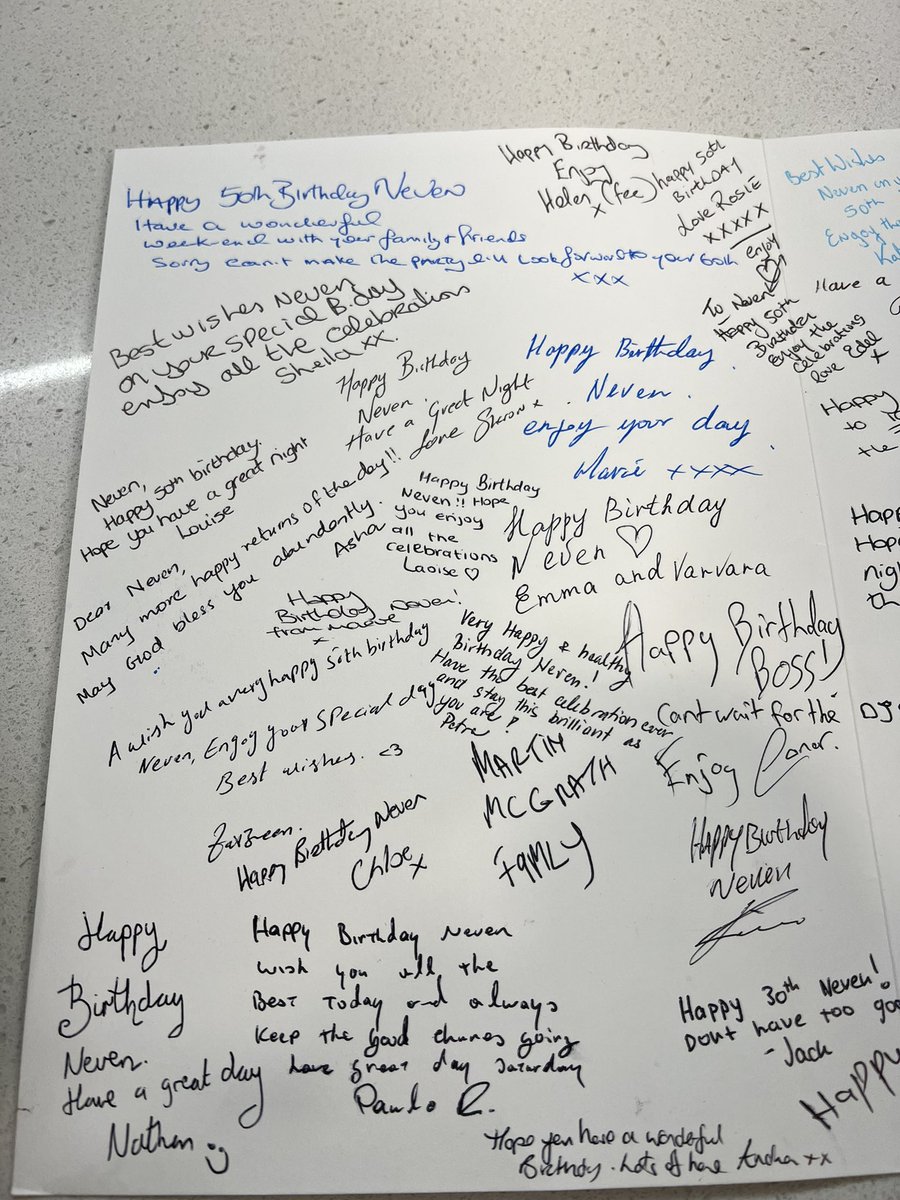 Happy 50th Birthday Neven
Have a wonderful
week-end with your family & friends
Sorry can't make the party but look forward to your 60th
xxx
Happy Birthday
Enjoy
Helen (fee)
x
happy 50th
BIRTHDAY
Love ROSIE
XXXXX
enjoy
Best Wishes
Neven on y
50th
Enjoy the
To Neven
Happy 50th
Birthday
Enjoy the
celebrations
love Edel
x
Have a
Best wishes Neven
on your special B.day
enjoy all the celebrations
Sheila xx.
Happy Birthday
Neven.
Have a Great Night
Love Sharon x
Happy Birthday
Neven.
enjoy your day
Marie xxxx
Happy
to
the
Neven,
Happy 50th birthday.
Hope you have a great night
Louise
Dear Neven,
Many more happy returns of the day!!
May God bless you abundantly.
Asha
Happy Birthday
Neven!! Hope
you enjoy
all the
celebrations
Laoise ♡
Happy Birthday
Neven ♡
Emma and Varvara
Happ
Hop
nigh
th
Happy
Birthday Neven!
from Maeve
x
A wish you a very happy 50th birthday
Neven, Enjoy your special day
Best wishes. <3
Zarreen.
Very Happy & healthy
Birthday Neven!
Have the best celebration ever
and stay this brilliant as
you are!
Petra
Happy Birthday
BOSS!
Cant wait for the DJ
Enjoy Conor.
MARTIN
MCGRATH
FAMLY
Happy Birthday Neven
Chloe x
Happy Birthday
Neven
Happy
Birthday
Neven.
Have a great day
Nathan
Happy Birthday Neven
wish you all the
Best Today and always
Keep the good chunes going
have great day Saturday
Paulo R.
Happy 30th Neven!
Dont have too goo
- Jack
Happy
Hope you have a wonderful
Birthday. Lots of love xx